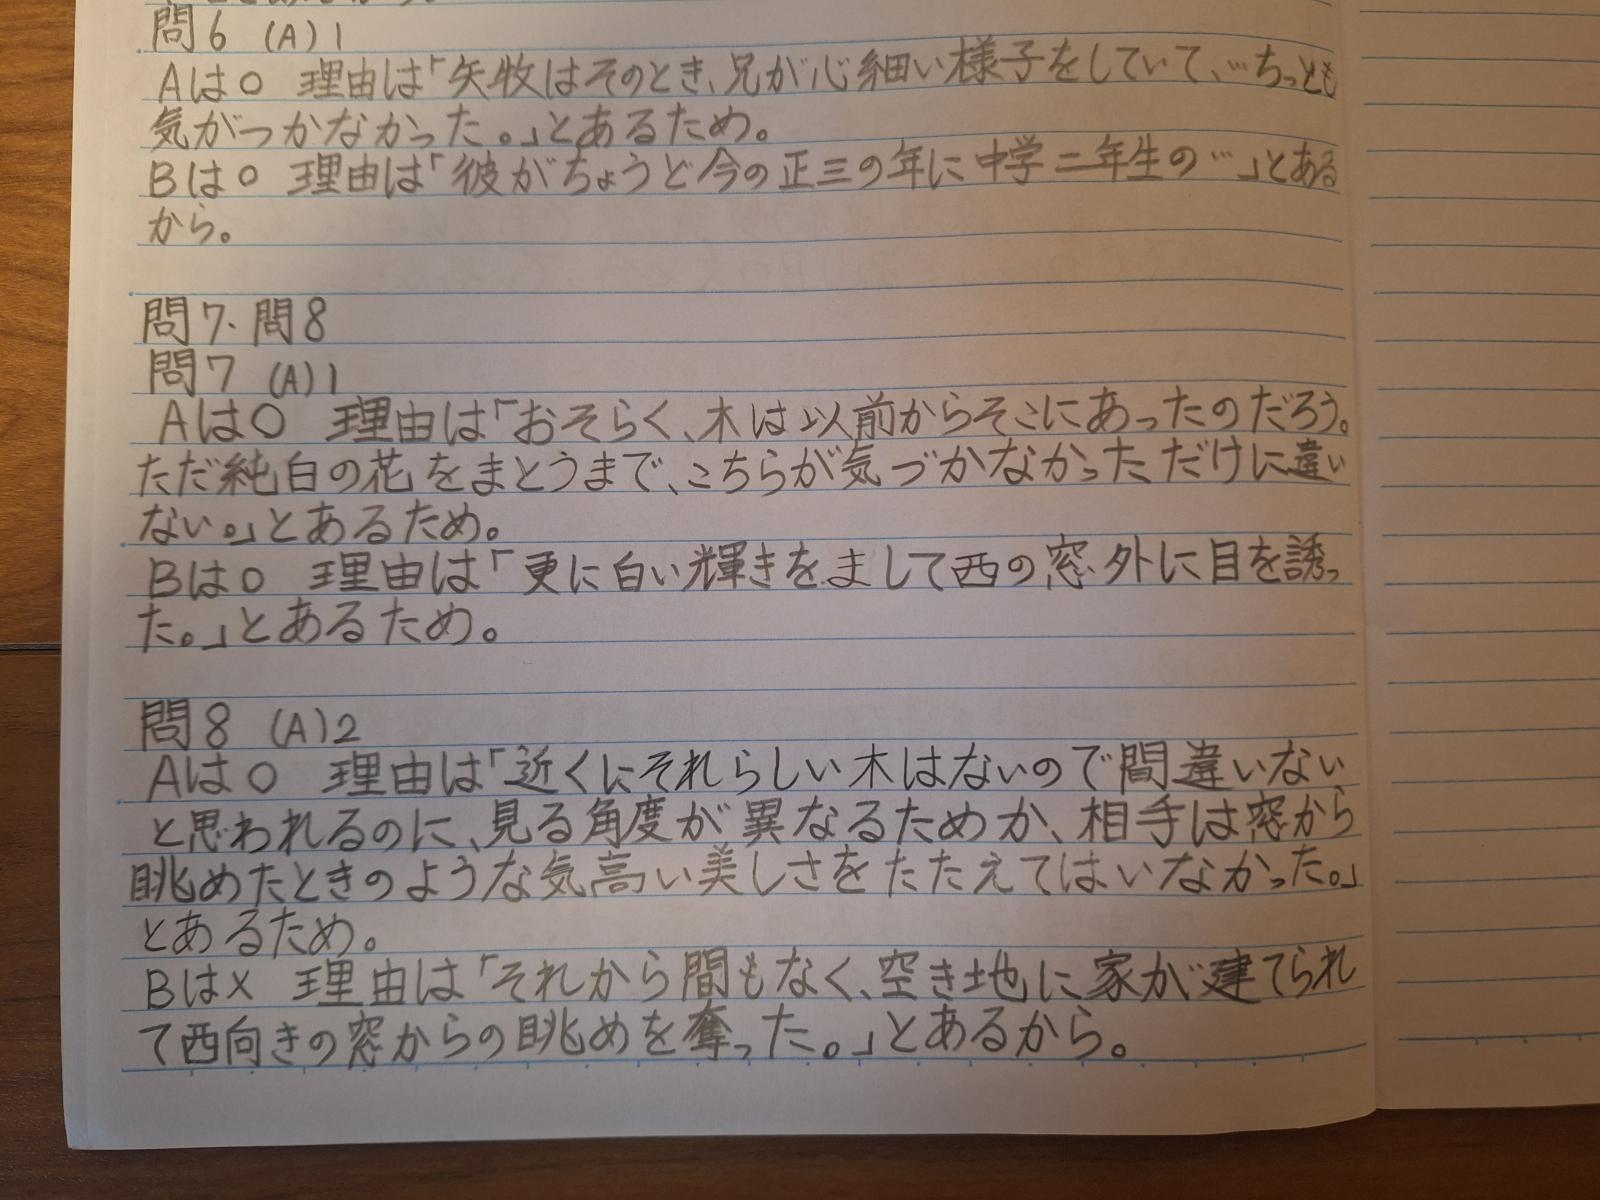 問6 (A)1
Aは○ 理由は「矢牧はそのとき、兄が心細い様子をしていて、…ちっとも
気がつかなかった。」とあるため。
Bは○ 理由は「彼がちょうど今の正三の年に中学二年生の…」とある
から。
問7.問8
問7 (A)1
Aは○ 理由は「おそらく、木は以前からそこにあったのだろう。
ただ純白の花をまとうまで、こちらが気づかなかっただけに違い
ない。」とあるため。
Bは○ 理由は「更に白い輝きをまして西の窓外に目を誘っ
た。」とあるため。
問8 (A)2
Aは○ 理由は「近くにそれらしい木はないので間違いない
と思われるのに、見る角度が異なるためか、相手は窓から
眺めたときのような気高い美しさをたたえてはいなかった。」
とあるため。
Bは× 理由は「それから間もなく、空き地に家が建てられ
て西向きの窓からの眺めを奪った。」とあるから。